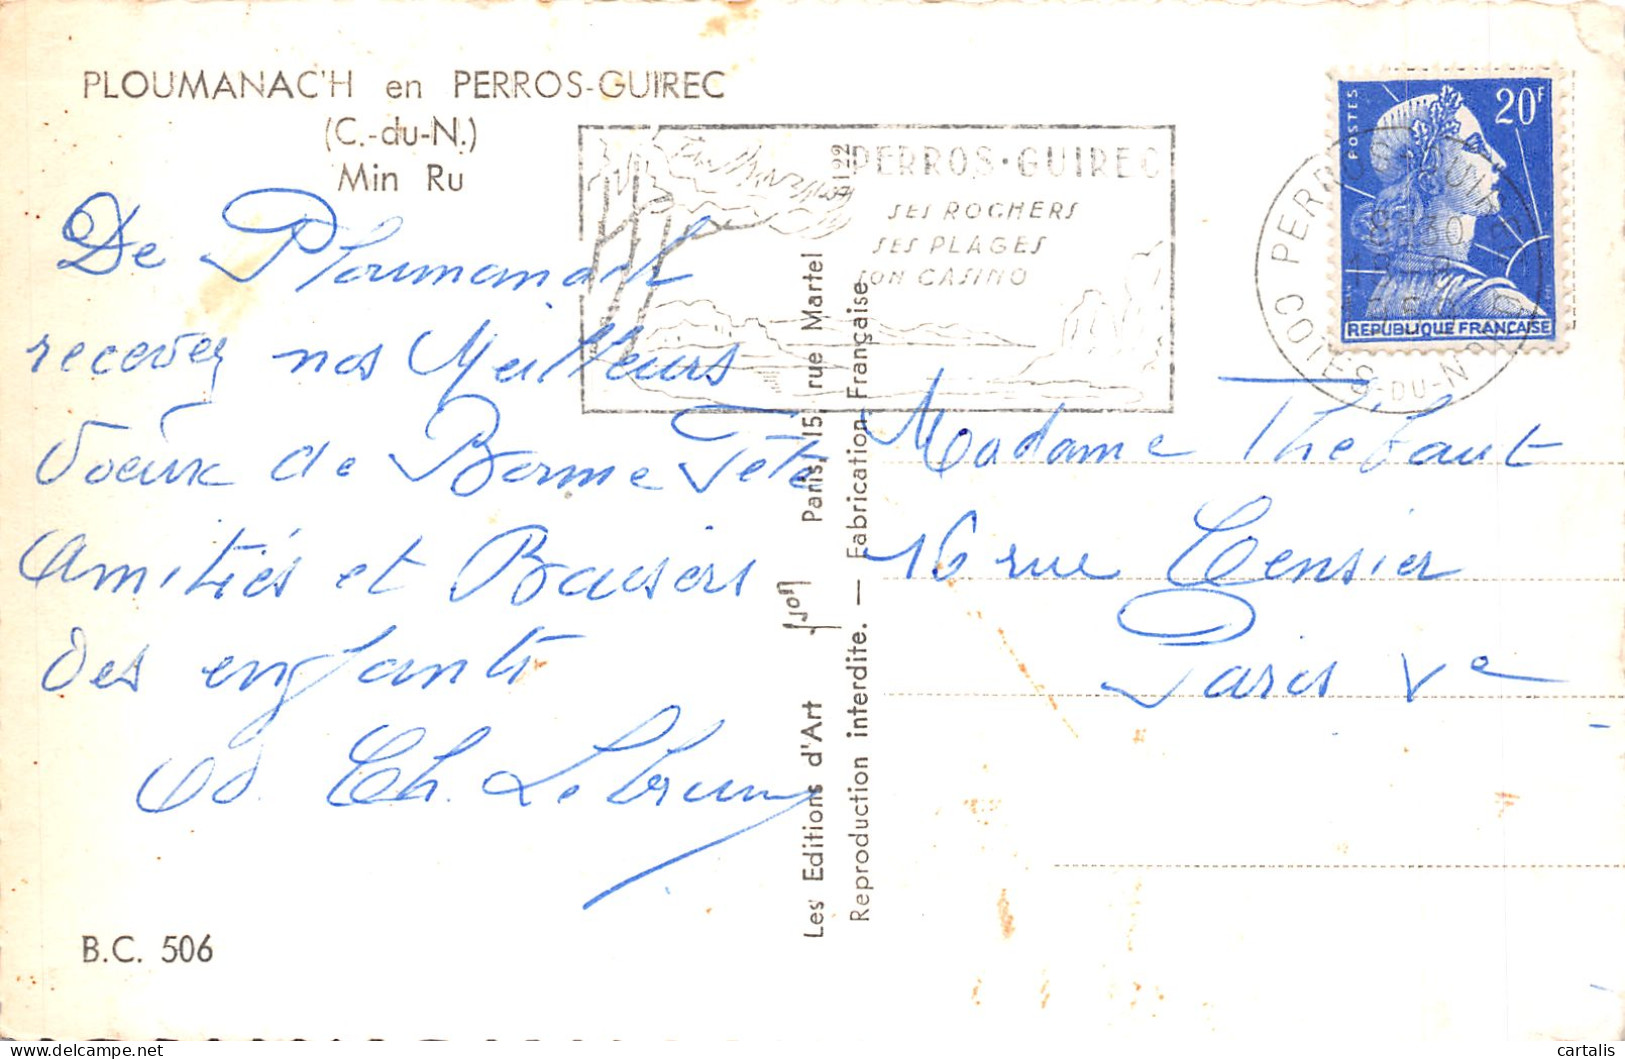 PLOUMANAC'H en PERROS-GUIREC
(C.-du-N.)
Min Ru
De Ploumanach
recevez nos Meilleurs
Voeux de Bonne Fête
Amitiés et Baisers
des enfants
Ch. Lebrun
B.C. 506
PERROS-GUIREC
SES ROCHERS
SES PLAGES
SON CASINO
Les Editions d'Art Paris, 15, rue Martel
Reproduction interdite. — Fabrication Française
POSTES
20F
REPUBLIQUE FRANÇAISE
PERROS-GUIREC
COTES-DU-NORD
Madame Thébaut
16 rue Censier
Paris Ve
cartalis